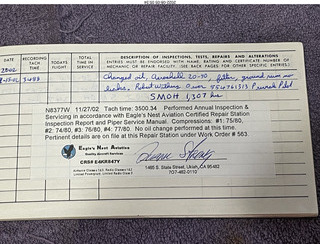 DESCRIPTION OF INSPECTIONS, TESTS, REPAIRS AND ALTERATIONS
DATE
RECORDING TACH TIME
TODAY'S FLIGHT
TOTAL TIME IN SERVICE
ENTRIES MUST BE ENDORSED WITH NAME, RATING AND CERTIFICATE NUMBER OF MECHANIC OR REPAIR FACILITY. (SEE BACK PAGES FOR OTHER SPECIFIC ENTRIES.)
2002
3488
Changed oil, Aeroshell 20-50, filter, ground run no
leaks, Robert
SMOH 1,307 hrs
N8377W 11/27/02 Tach time: 3500.34 Performed Annual Inspection &
Servicing in accordance with Eagle's Nest Aviation Certified Repair Station
Inspection Report and Piper Service Manual. Compressions: #1: 75/80,
#2: 74/80, #3: 76/80, #4: 77/80. No oil change performed at this time.
Pertinent details are on file at this Repair Station under Work Order # 563.
Eagle's Nest Aviation
Quality Aircraft Services
CRS# E4KR847Y
1465 S. State Street, Ukiah, CA 95482
707-462-0110